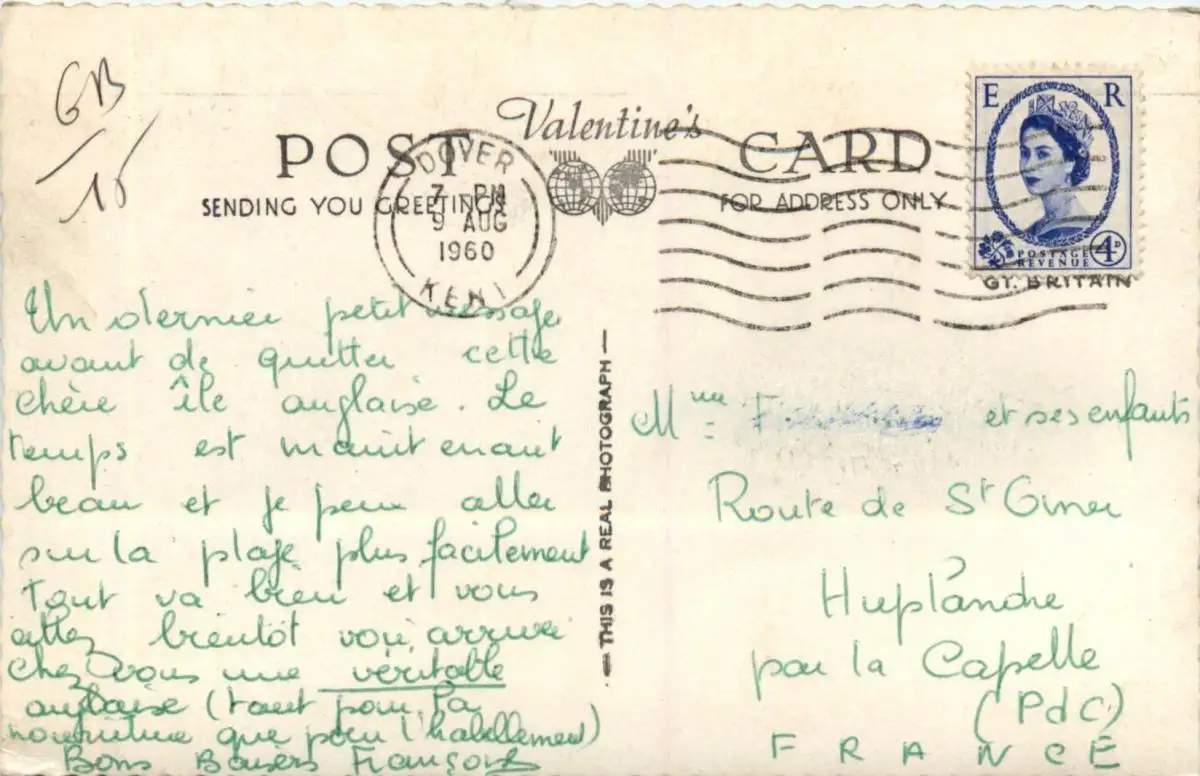 GB
15
Valentine's
POST CARD
SENDING YOU GREETINGS
FOR ADDRESS ONLY
DOVER
7 PM
9 AUG
1960
KENT
E R
POSTAGE
REVENUE
4D
GT. BRITAIN
Un dernier petit message
avant de quitter cette
chère île anglaise. Le
temps est maintenant
beau et je peux aller
sur la plage plus facilement
Tout va bien et vous
allez bientôt voir arriver
chez vous une véritable
anglaise (tant pour la
nourriture que pour l'habillement)
Bons Baisers
— THIS IS A REAL PHOTOGRAPH —
Mme F. et ses enfants
Route de St Omer
Huplandre
par la Capelle
(PdC)
FRANCE